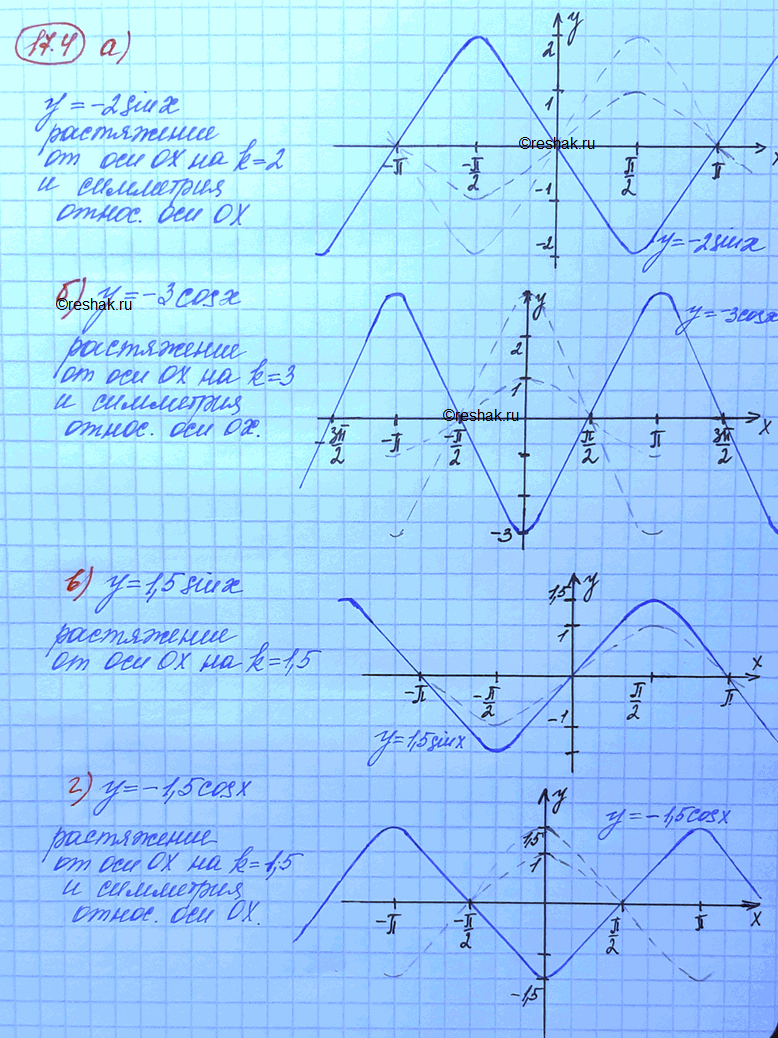 17.4 а)
y = -2 sin x
растяжение
от оси OX на k=2
и симметрия
относ. оси OX
y
2
1
-π
-π/2
π/2
π
x
-1
-2
y = -2 sin x
©reshak.ru
б) y = -3 cos x
©reshak.ru
растяжение
от оси OX на k=3
и симметрия
относ. оси OX.
y
2
1
y = -3 cos x
©reshak.ru
-3π/2
-π
-π/2
π/2
π
3π/2
x
-3
в) y = 1,5 sin x
растяжение
от оси OX на k=1,5
y
1,5
1
-π
-π/2
π/2
π
x
-1
y = 1,5 sin x
г) y = -1,5 cos x
растяжение
от оси OX на k=1,5
и симметрия
относ. оси OX.
y
1,5
1
y = -1,5 cos x
-π
-π/2
π/2
π
x
-1,5